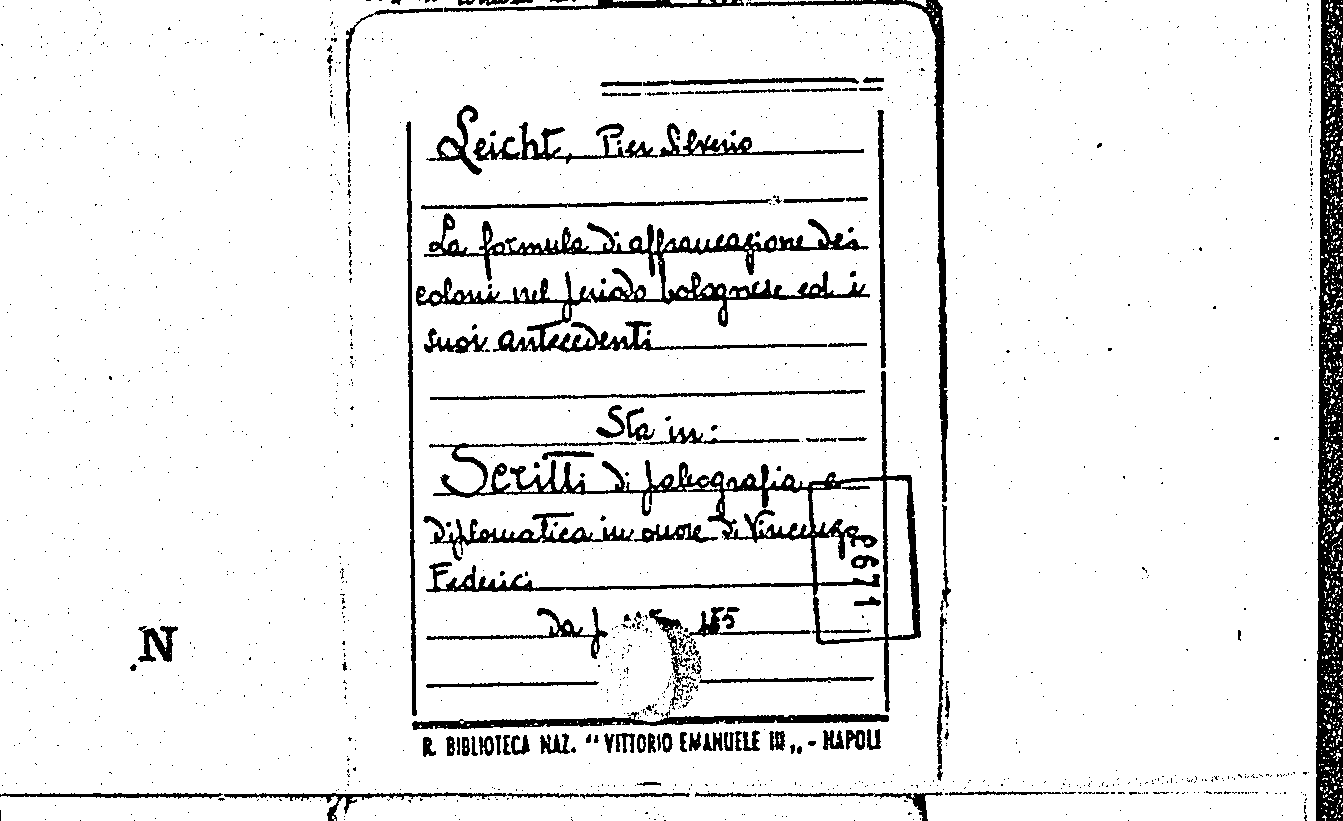 Leicht, Pier Silverio
La formula di affrancazione dei
coloni nel periodo bolognese ed i
suoi antecedenti
Sta in:
Scritti di paleografia e
diplomatica in onore di Vincenzo
Federici
Da p. 155
N
R. BIBLIOTECA NAZ. “ VITTORIO EMANUELE III „ - NAPOLI